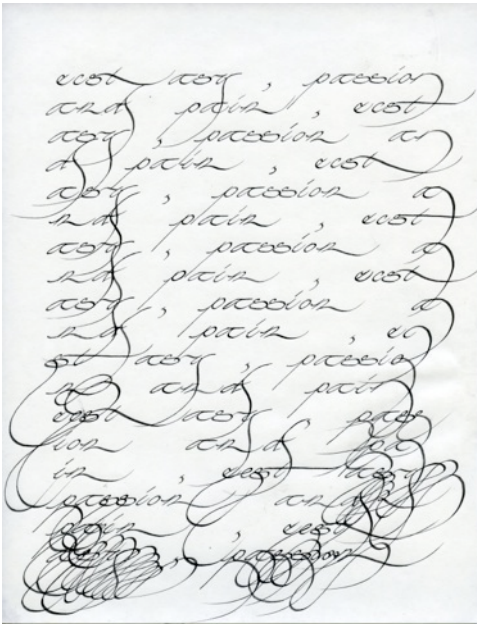 ecstasy , passion
and pain , ecst
asy , passion an
d pain , ecst
asy , passion a
nd pain , ecst
asy , passion a
nd pain , ecst
asy , passion a
nd pain , ec
stasy , passio
n and pain
ecstasy , pass
ion and pa
in , ecstasy
passion and
pain , ecst
asy , passion